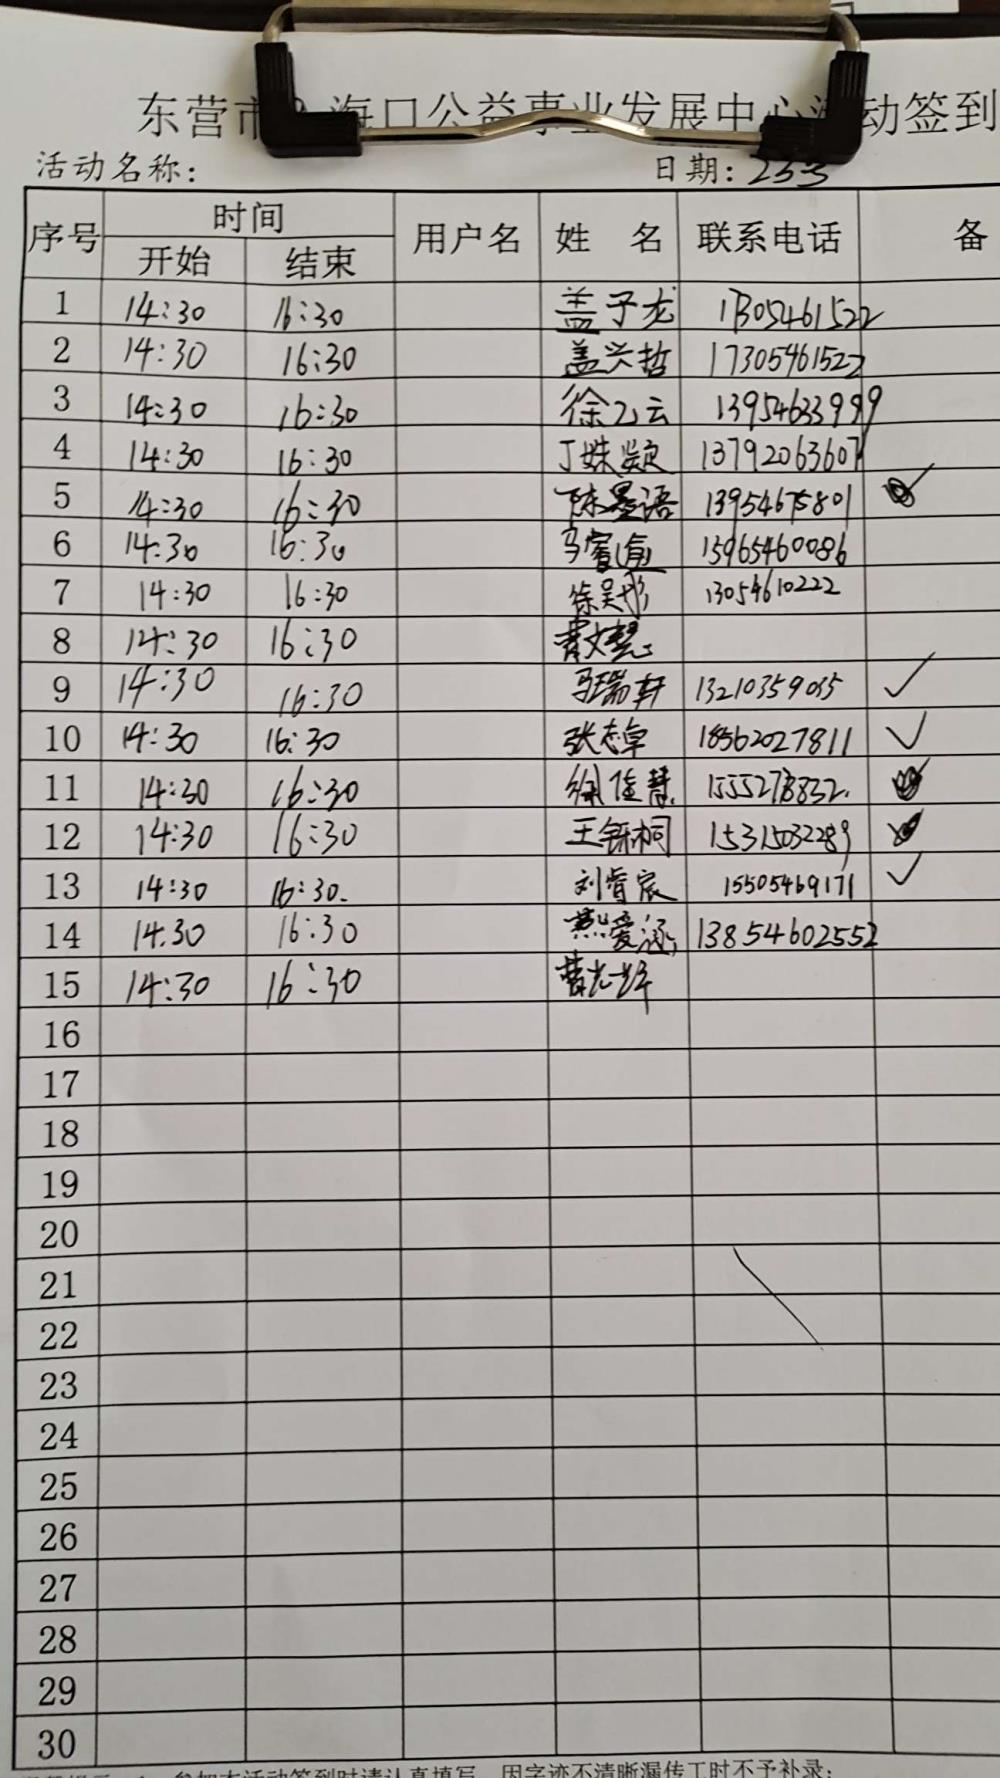 东营市 海口公益事业发展中心活动签到
活动名称: 日期: 23号
序号 时间 用户名 姓 名 联系电话 备
开始 结束
1 14:30 16:30 盖子龙 17305461522
2 14:30 16:30 盖兴哲 17305461522
3 14:30 16:30 徐乙云 13954633999
4 14:30 16:30 丁姝 13792063607
5 14:30 16:30 陈墨语 13954675801
6 14:30 16:30 15965460086
7 14:30 16:30 徐昊彤 13054610222
8 14:30 16:30 曹文慧
9 14:30 16:30 马瑞轩 13210359035
10 14:30 16:30 张志卓 18562027811
11 14:30 16:30 徐佳慧
12 14:30 16:30 王铄桐 15315032289
13 14:30 16:30. 刘宸 15505469171
14 14:30 16:30 燕爱泳 13854602552
15 14:30 16:30 曹
16
17
18
19
20
21
22
23
24
25
26
27
28
29
30
参加本活动签到时请认真填写，因字迹不清晰漏传工时不予补录;